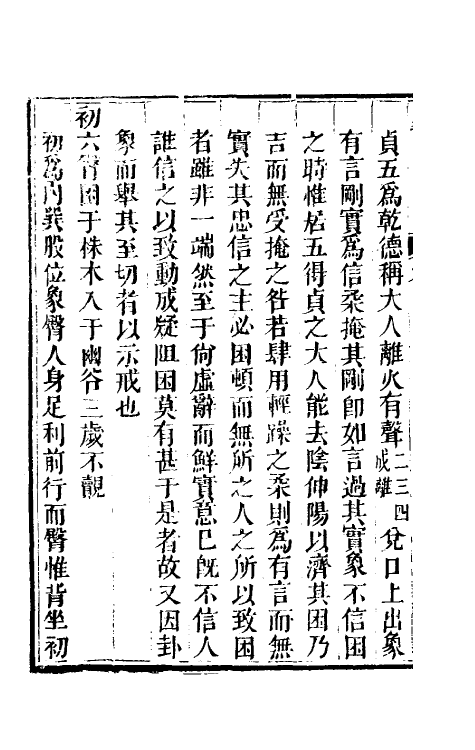 貞五爲乾德稱大人離火有聲二三四成離兌口上出象
有言剛實爲信柔掩其剛卽如言過其實象不信困
之時惟居五得貞之大人能去陰伸陽以濟其困乃
吉而無受掩之咎若肆用輕躁之柔則爲有言而無
實失其忠信之主必困頓而無所之人之所以致困
者雖非一端然至于尙虛辭而鮮實意己旣不信人
誰信之以致動成疑阻困莫有甚于是者故又因卦
象而舉其至切者以示戒也
初六臀困于株木入于幽谷三歲不覿
初爲內巽股位象臀人身足利前行而臀惟背坐初